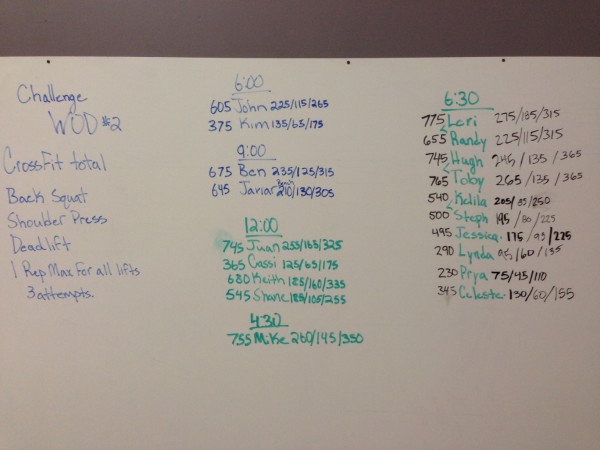 Challenge
WOD #2
CrossFit total
Back Squat
Shoulder Press
Deadlift
1 Rep Max For all lifts
3 attempts.
6:00
605 John 225/115/265
375 Kim 135/65/175
9:00
675 Ben 235/125/315
645 Javiar 210/130/305
12:00
745 Juan 255/165/325
365 Cassi 125/65/175
680 Keith 185/160/335
545 Shane 185/105/255
4:30
755 Mike 260/145/350
6:30
775 Leri 275/185/315
655 Randy 225/115/315
745 Hugh 245/135/365
765 Toby 265/135/365
540 205/85/250
500 Steph 195/80/225
495 Jessica 175/95/225
290 Lynda 95/60/135
230 Prya 75/45/110
345 Celeste 130/60/155